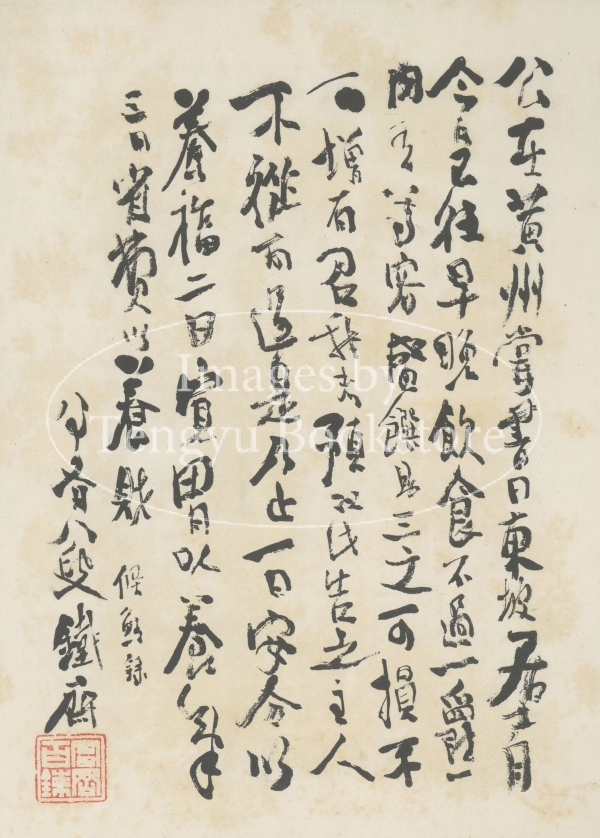 公在黄州嘗書曰東坡居士自
今日已往早晩飲食不過一爵一
肉有尊客盛饌則三之可損不
可增有召我者預以此告之主人
不從而過是乃止一曰安分以
養福二曰寛胃以養氣
三曰省費以養財 侯鯖録
八十有八叟鐵齋
富岡百錬
Images by
Tengyu Bookstore